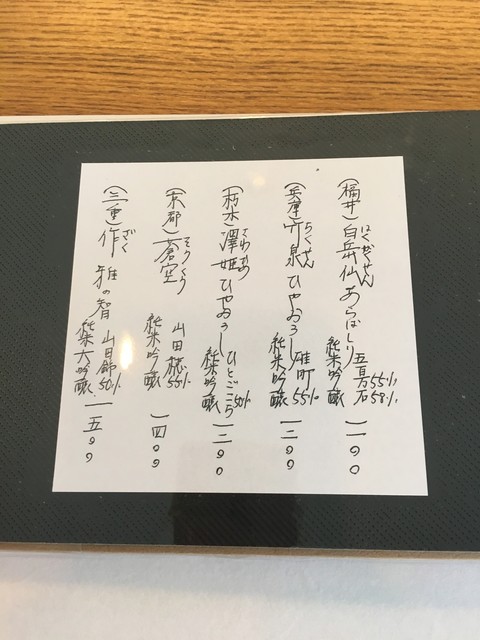 (福井)白岳仙 あらばしり 五百万石 55% 58% 純米吟醸 一一〇〇
はくがくせん
(兵庫)竹泉 ひやおろし 雄町 55% 純米吟醸 一二〇〇
ちくせん
(栃木)澤姫 ひやおろし ひとごこち 50% 純米吟醸 一二〇〇
さわひめ
(京都)蒼空 山田穂 55% 純米吟醸 一四〇〇
そうくう
(三重)作 雅の智 山田錦 50% 純米大吟醸 一五〇〇
ざく